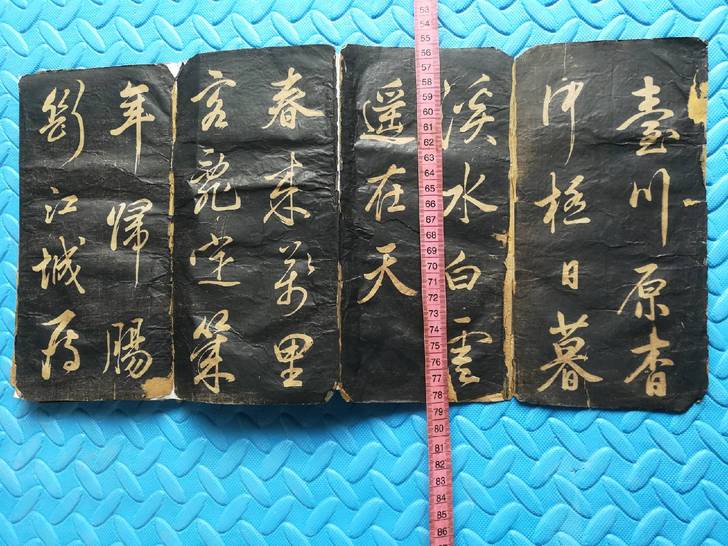 臺川原杳
何極日暮
溪水白雲
遥在天
春来萬里
客亂定幾
年歸腸
斷江城雁
53
54
55
56
57
58
59
60
61
62
63
64
65
66
67
68
69
70
71
72
73
74
75
76
77
78
79
80
81
82
83
84
85
86